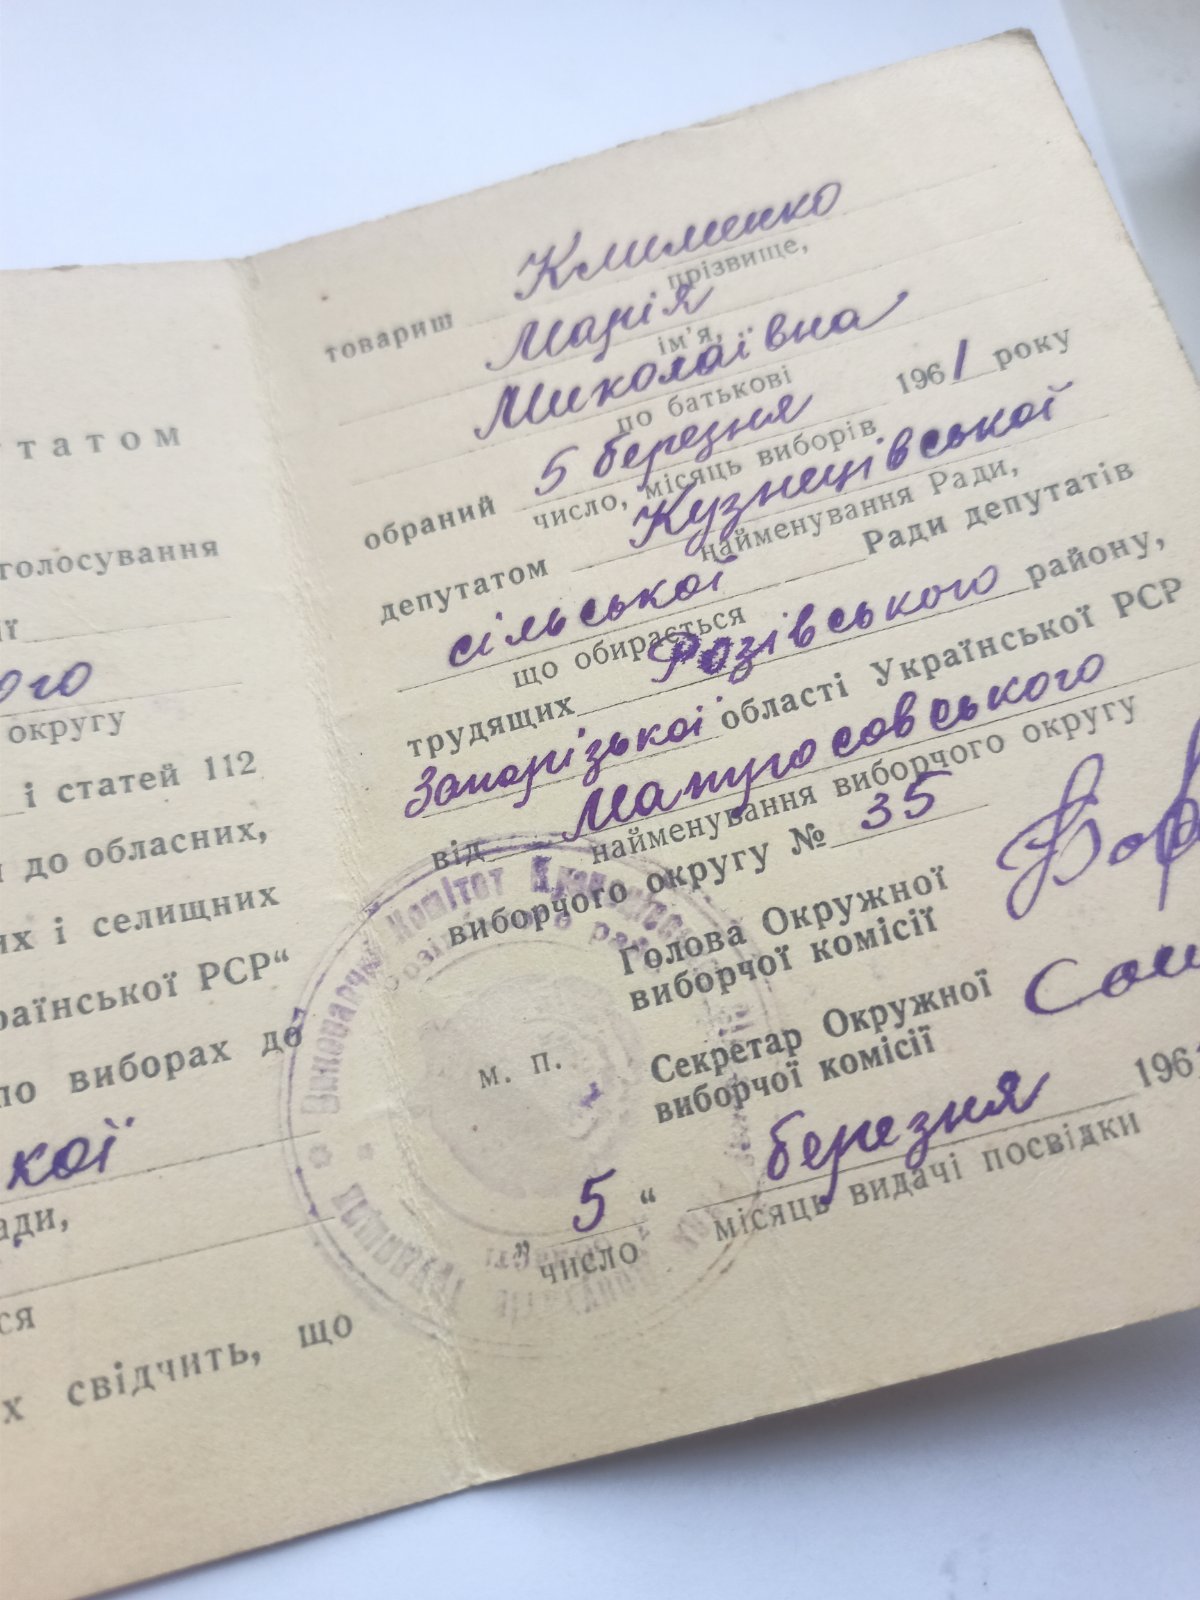 татом
голосування
ії
ого
округу
і статей 112
и до обласних,
их і селищних
раїнської РСР“
по виборах до
кої
ади,
ся
х свідчить, що
товариш Клименко
прізвище,
Марія
ім'я,
Миколаївна
по батькові
обраний 5 березня 1961 року
число, місяць виборів
депутатом Кузнецівської
найменування Ради,
сільської Ради депутатів
що обирається
трудящих Розівського району,
Запорізької області Української РСР
від
найменування виборчого округу
виборчого округу № 35
Голова Окружної
виборчої комісії
Секретар Окружної
виборчої комісії
м. п.
Виконавчий Комітет
„ 5 “ березня 1961
число місяць видачі посвідки